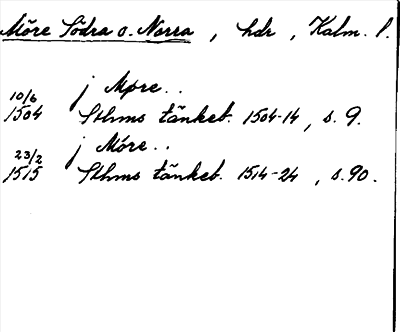 Möre Södra o. Norra , hdr , Kalm. l.
j Møre . .
10/6
1504 Sthms tänkeb. 1504-14 , s. 9.
j Móre . .
23/2
1515 Sthms tänkeb. 1514-24 , s. 90.